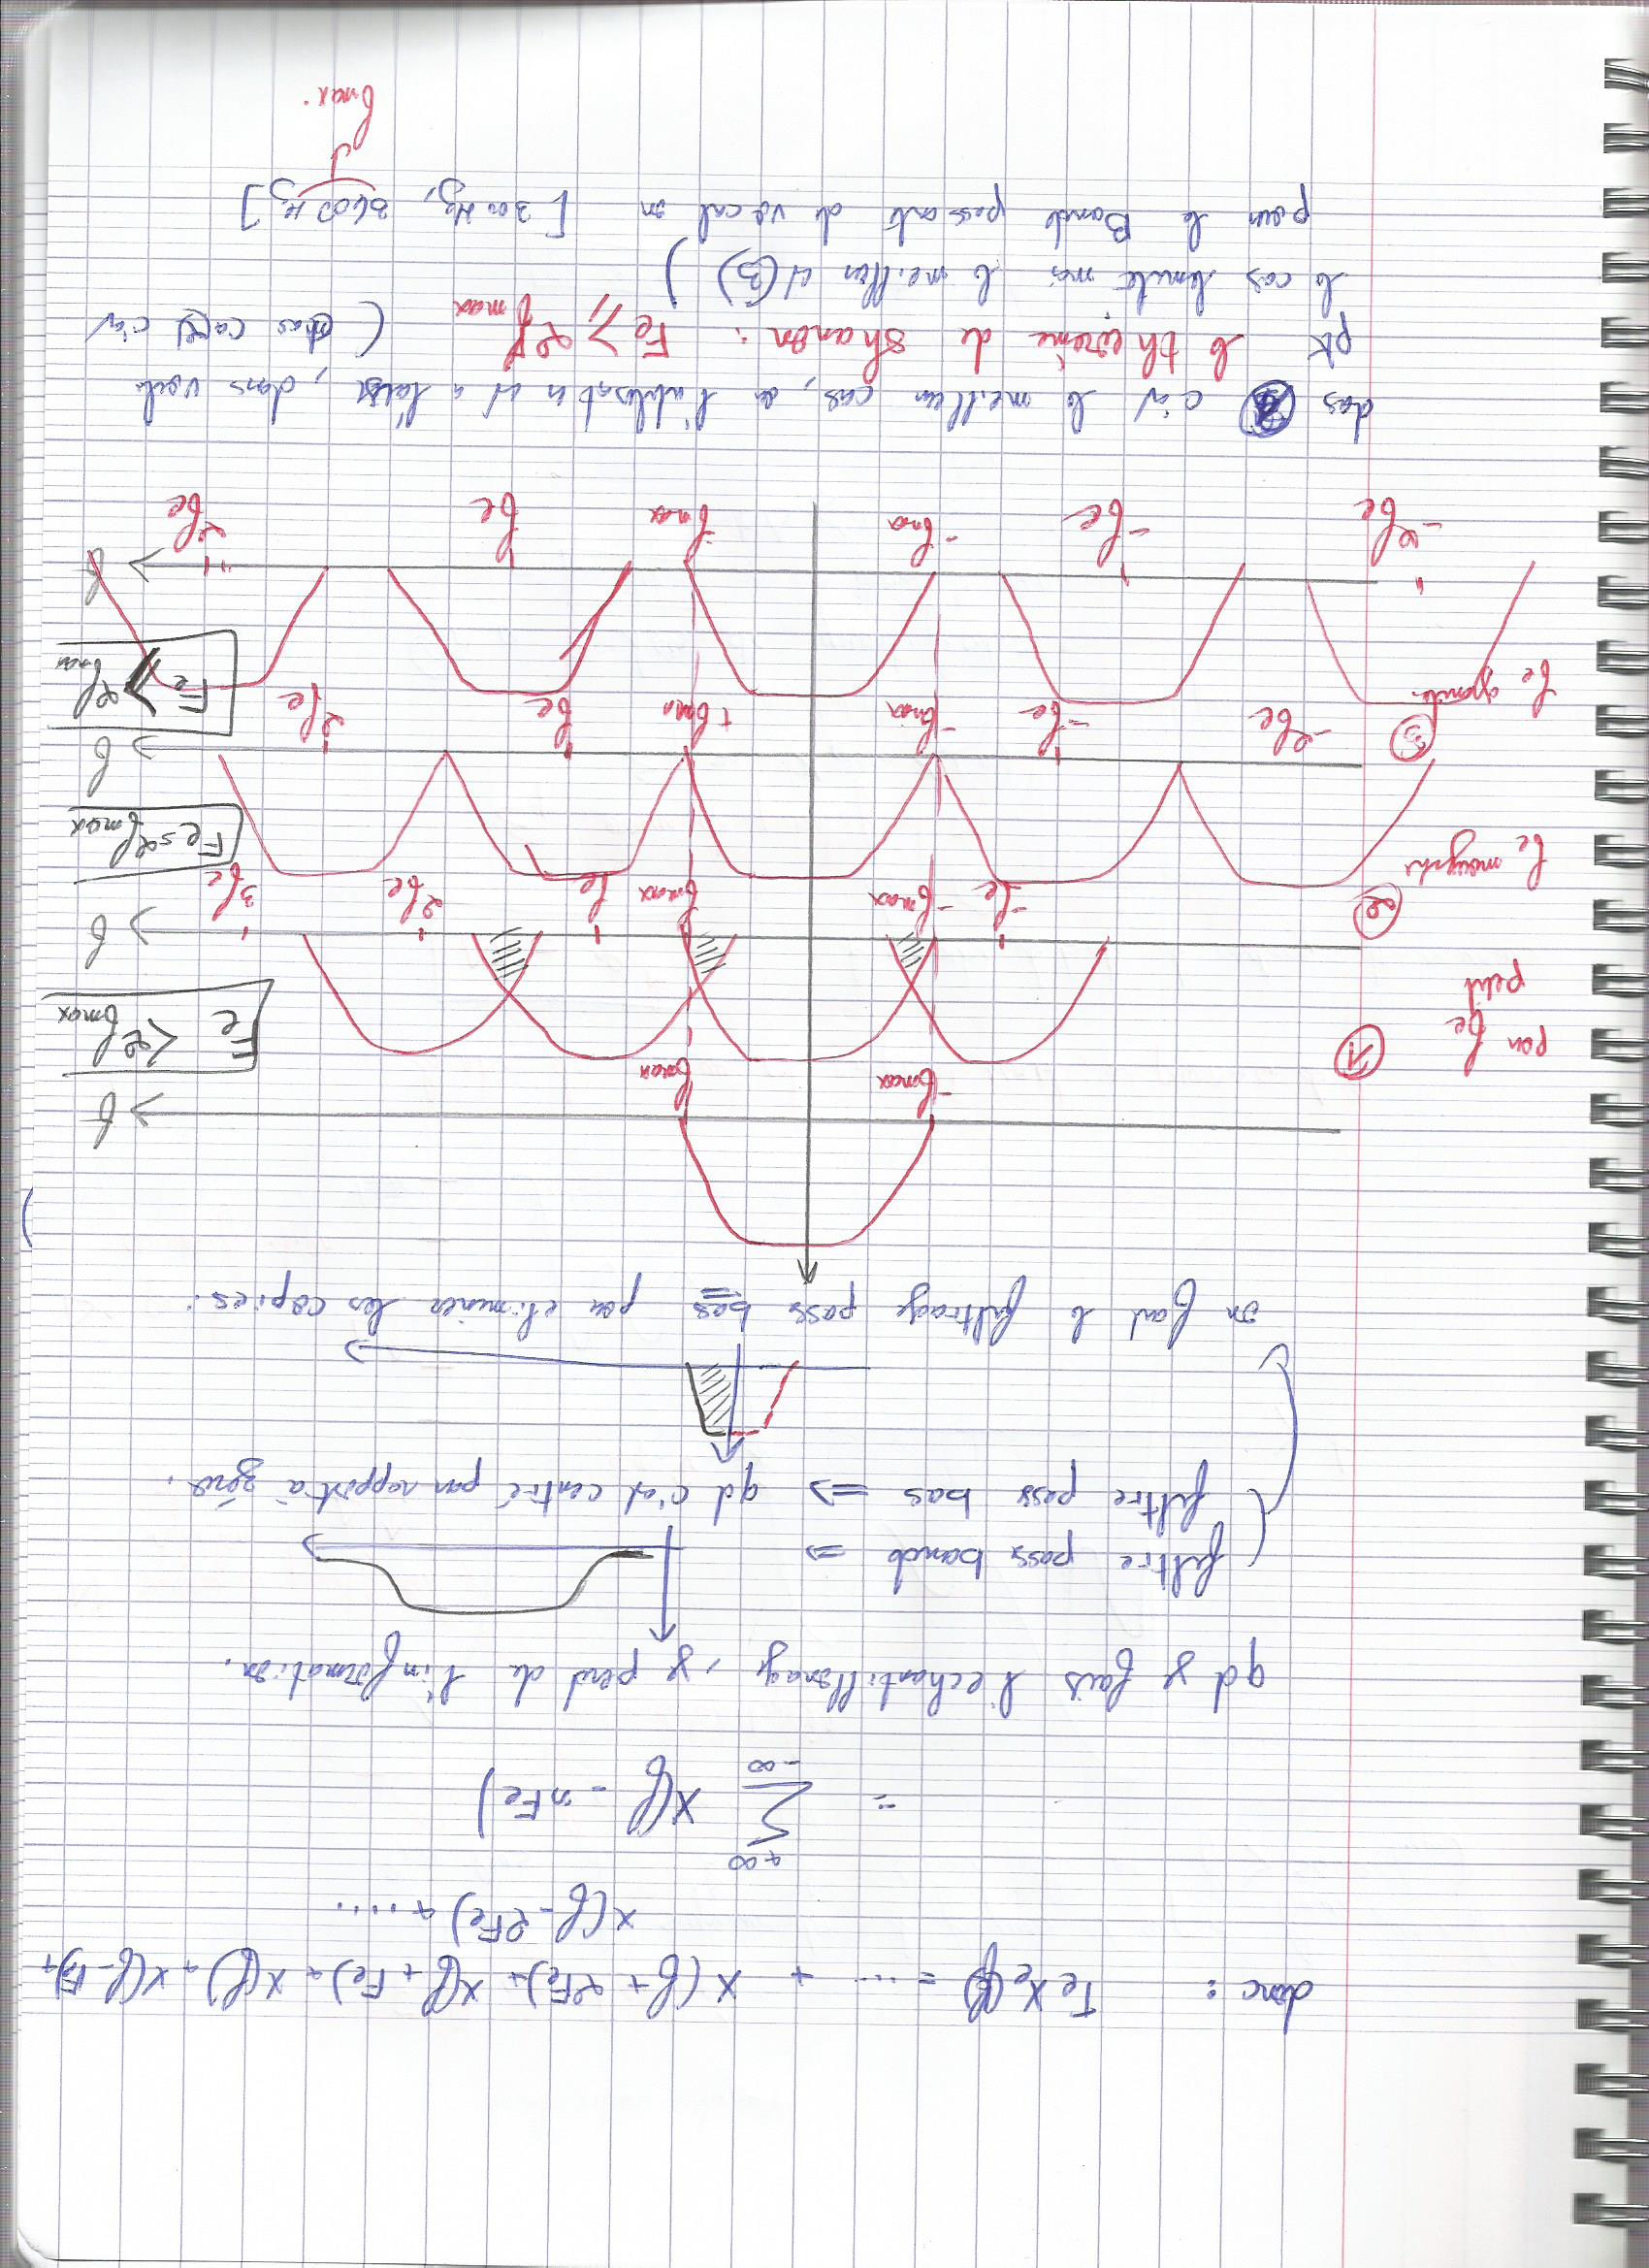 donc : TeXe(f) = ... + X(f + 2Fe) + X(f + Fe) + X(f) + X(f - Fe) +
X(f - 2Fe) + .....
= +∞ ∑ -∞ X(f - nFe)
qd je fais l'echantillonage, je perd de l'information.
filtre pass bande ⇒
filtre pass bas ⇒ qd c'est centré par rapport à zéro.
on fait le filtrage pass bas pou eliminer les copies.
-fmax fmax f
① pour fe petit Fe < 2fmax
-fe -fmax fmax fe 2fe 3fe f
② fe moyenne Fe = 2fmax
-2fe -fe -fmax +fmax fe 2fe f
③ fe grande Fe > 2fmax
-2fe -fe -fmax fmax fe 2fe f
das ③ c'est le meilleur cas, on
pk le théorème de Shanon : Fe ⩾ 2fmax
le cas limite mais le meilleur est (3) )
pour la Bande passante de vocal on [300 Hz, 3400 Hz]
fmax.